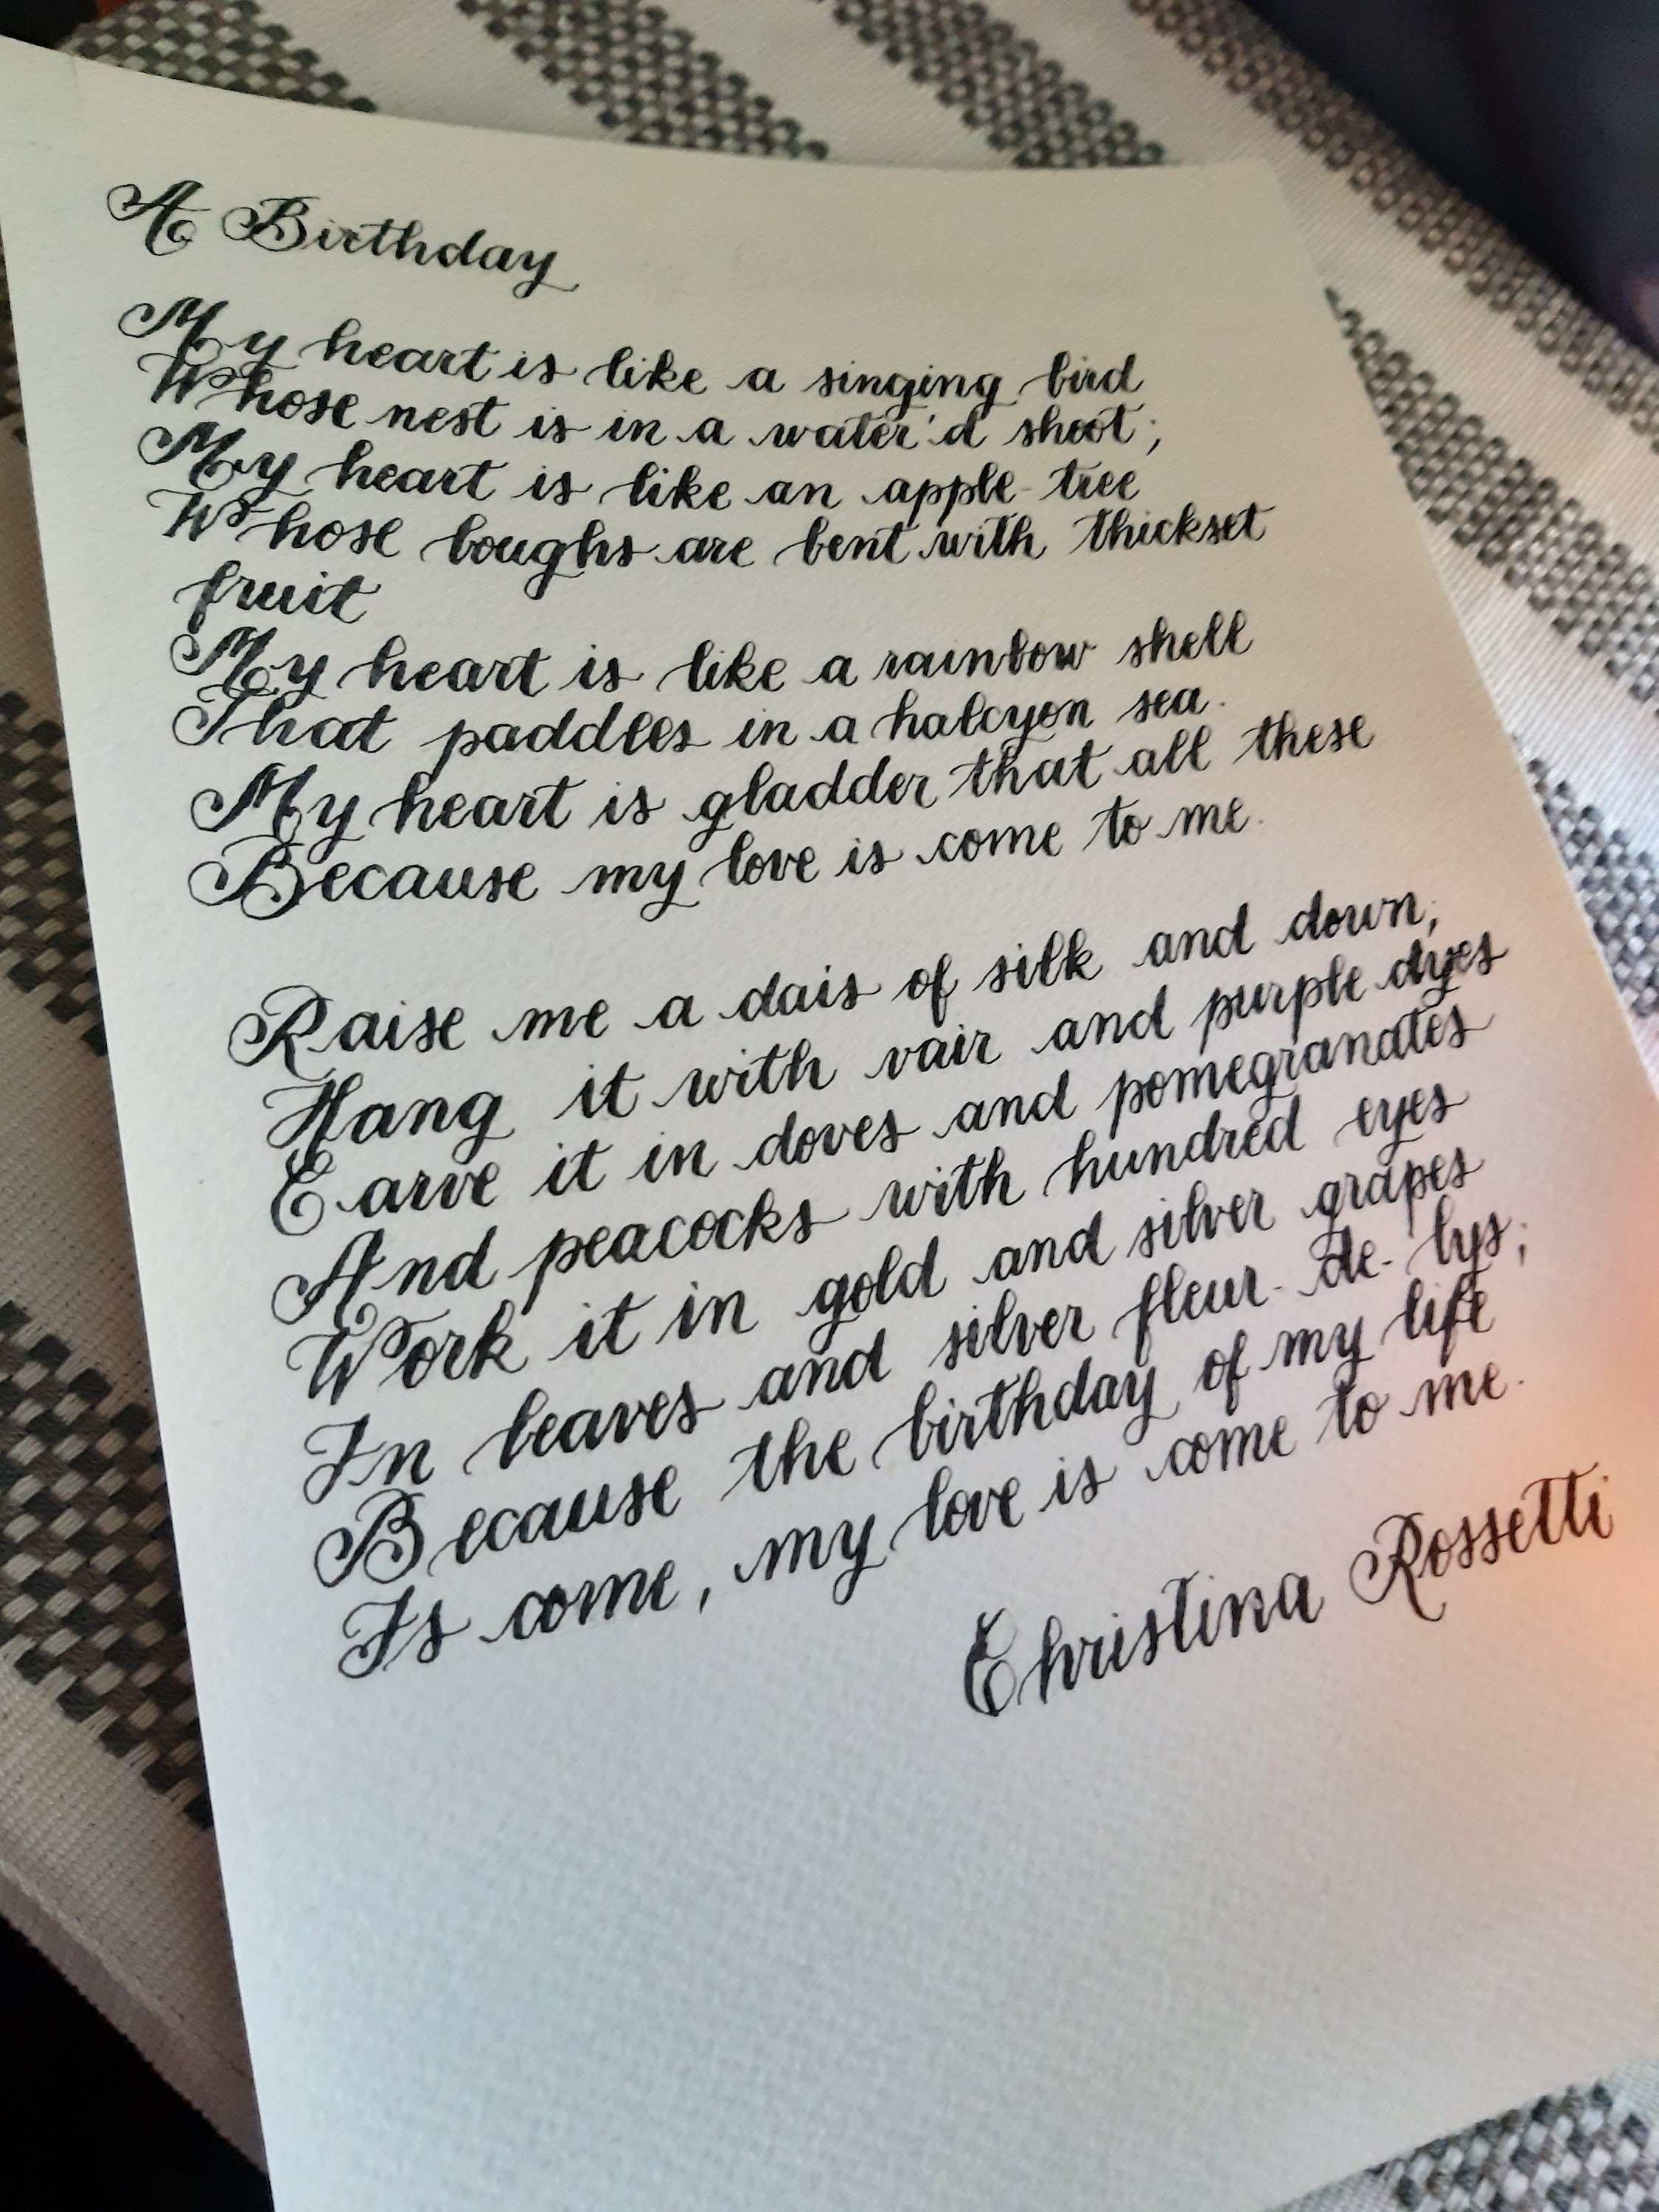 A Birthday
My heart is like a singing bird
Whose nest is in a water'd shoot;
My heart is like an apple-tree
Whose boughs are bent with thickset
fruit
My heart is like a rainbow shell
That paddles in a halcyon sea.
My heart is gladder that all these
Because my love is come to me.
Raise me a dais of silk and down;
Hang it with vair and purple dyes
Carve it in doves and pomegranates
And peacocks with hundred eyes
Work it in gold and silver grapes
In leaves and silver fleur-de-lys;
Because the birthday of my life
Is come, my love is come to me.
Christina Rossetti